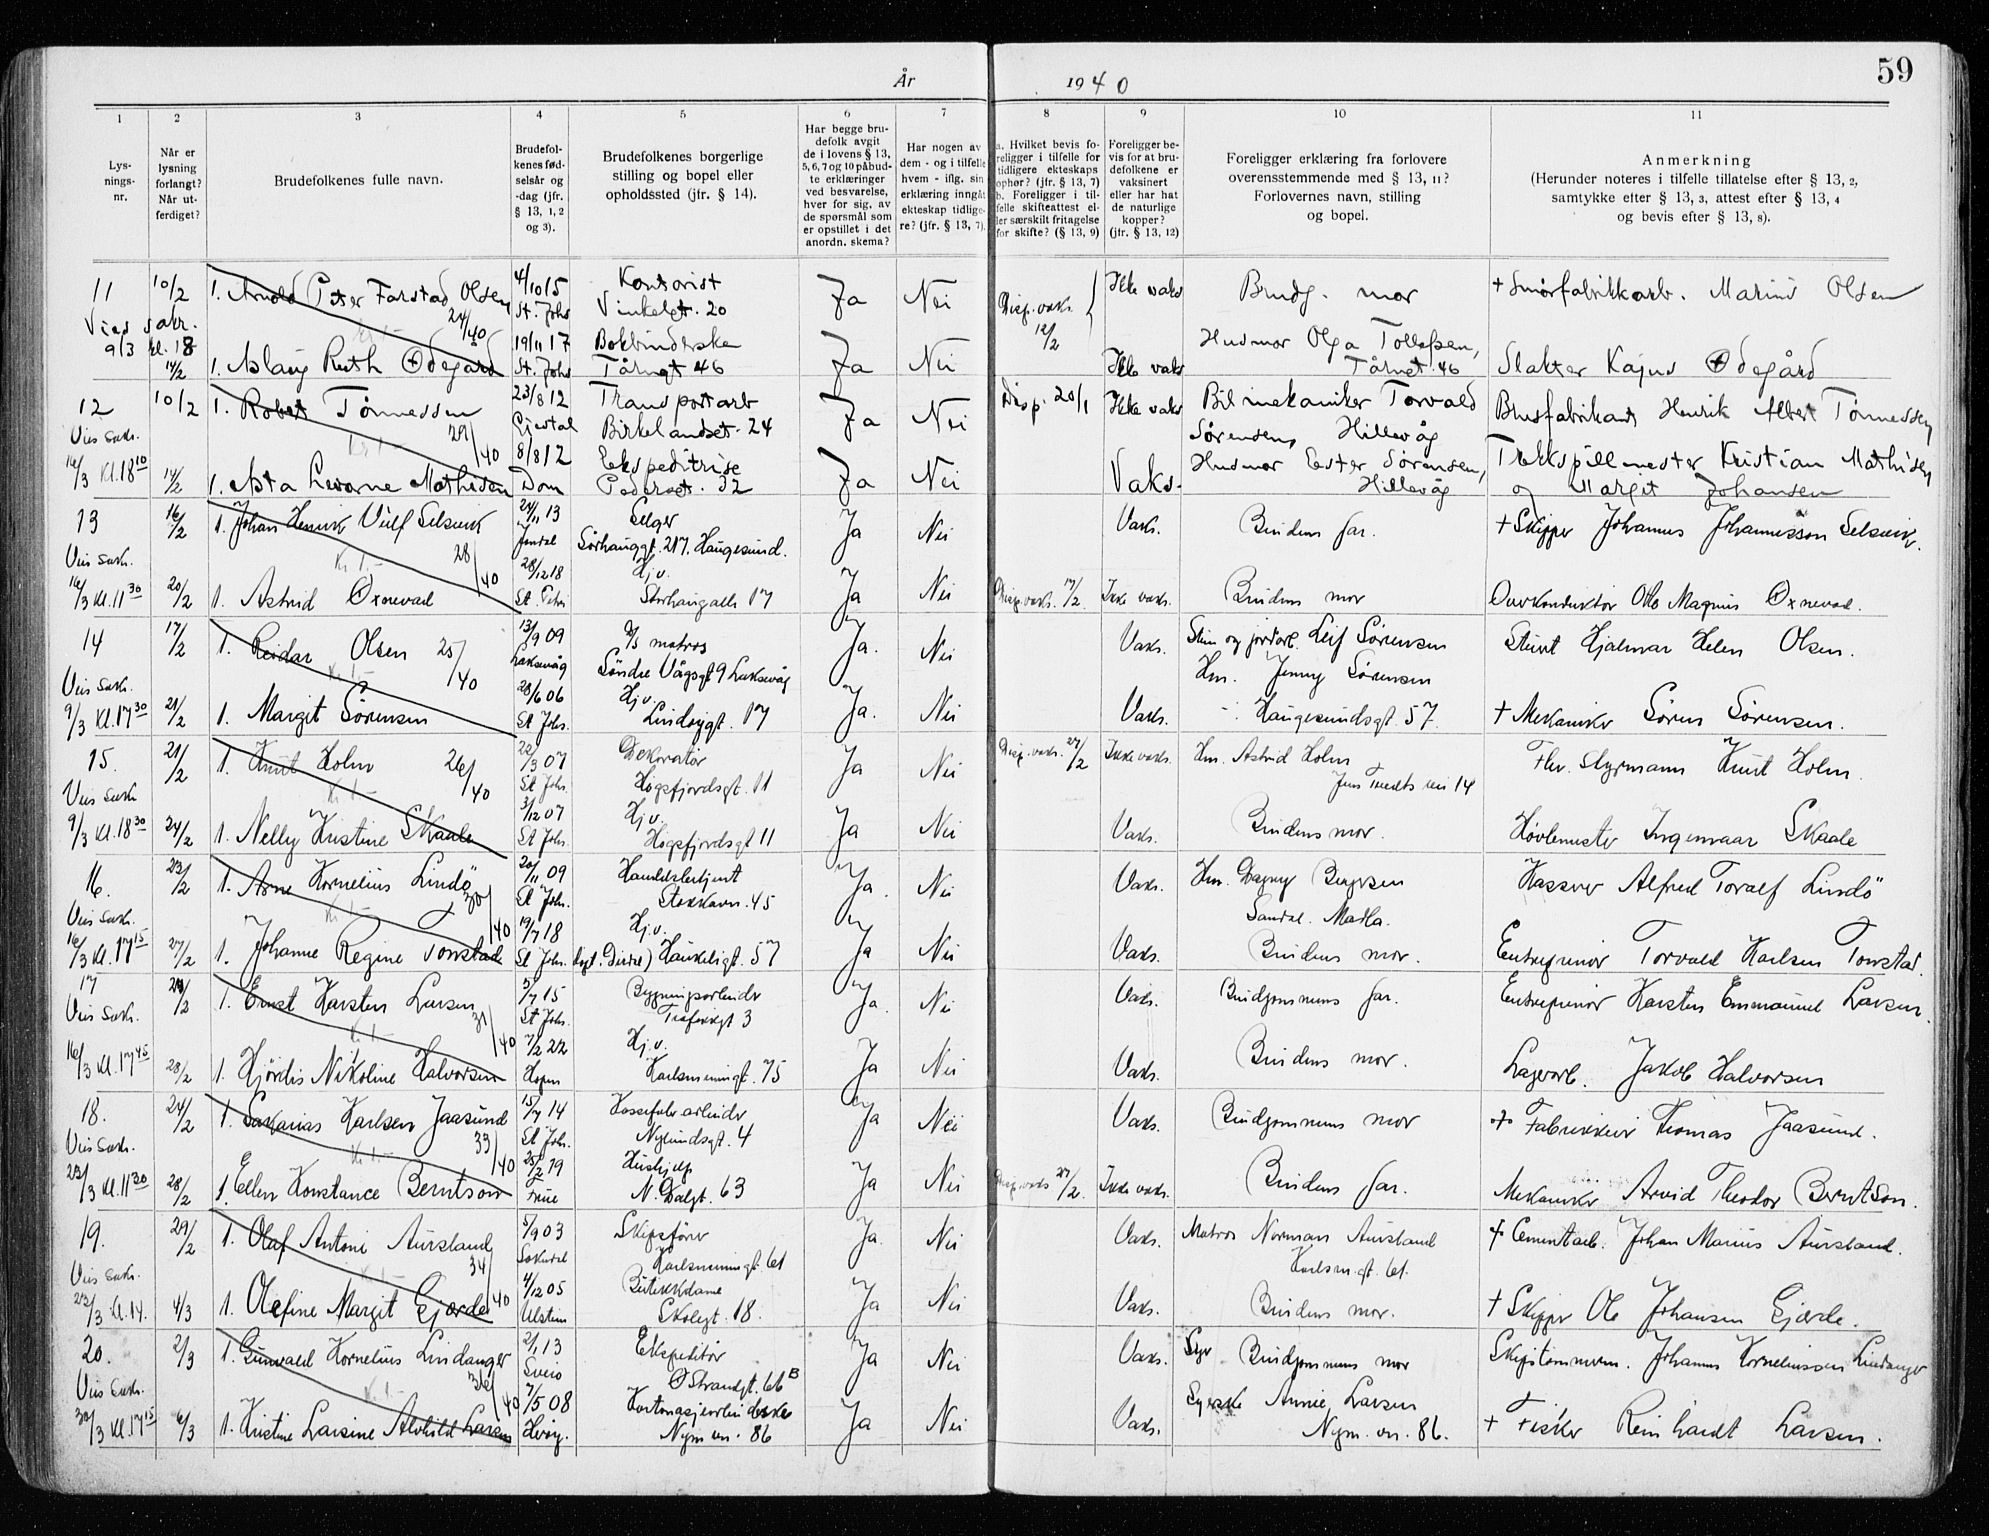 År 1940
59
1 2 3 4 5 6 7 8 9 10 11
Lysningsnr.
Når er lysning forlangt? Når utferdiget?
Brudefolkenes fulle navn.
Brudefolkenes fødselsår og -dag (jfr. § 13, 1, 2 og 3).
Brudefolkenes borgerlige stilling og bopel eller opholdssted (jfr. § 14).
Har begge brudefolk avgit de i lovens § 13, 5, 6, 7 og 10 påbudte erklæringer ved besvarelse, hver for sig, av de spørsmål som er opstillet i det anordn. skema?
Har nogen av dem - og i tilfelle hvem - iflg. sin erklæring inngåt ekteskap tidligere? (jfr. § 13, 7).
a. Hvilket bevis foreligger i tilfelle for tidligere ekteskaps ophør? (jfr. § 13, 7)
b. Foreligger i tilfelle skifteattest eller særskilt fritagelse for skifte? (§ 13, 9)
Foreligger bevis for at brudefolkene er vaksinert eller har hat de naturlige kopper? (jfr. § 13, 12)
Foreligger erklæring fra forlovere overensstemmende med § 13, 11? Forlovernes navn, stilling og bopel.
Anmerkning (Herunder noteres i tilfelle tillatelse efter § 13, 2, samtykke efter § 13, 3, attest efter § 13, 4 og bevis efter § 13, 8).
11 10/2 1. Arnold Peter Farstad Olsen 4/10 15 Kontorist Ja Nei Disp. vaks. Ikke vaks Brudg. mor + Smørfabrikkarb. Marius Olsen
24/40 St. Johs Vinkelgt. 20 12/2
Vies sakr. 9/3 kl. 18 19/11 17 Bokbinderske Husmor Olga Tollefsen,
14/2 1. Aslaug Ruth Ødegård St. Johs Tårngt 46 Ja Nei Ikke vaks Tårngt. 46 Slakter Kajus Ødegård
12 10/2 1. Robert Tönnessen 23/8 12 Transportarb Ja Nei Disp. 20/1 Ikke vaks Bilmekaniker Torvald Brusfabrikant Henrik Albert Tønnessen
Vies Sakr. 29/40 Gjestal Birkelandsgt. 24 Sørensen, Hillevåg
16/3 Kl. 18 10 8/8 12 Ekspeditrise Husmor Ester Sørensen, Trekkspillmester Kristian Mathisen
14/2 1. Asta Mathisen Dom Pedersgt. 32 Ja Nei Vaks. Hillevåg og Margit Johansen
13 16/2 1. Johan Henrik Ulf Selsvik 24/11 13 Selger Ja Nei Vaks. Brudens far. + Skipper Johannes Johannesson Selsvik.
Vies Sakr. 28/40 Sørhauggt. 217. Haugesund.
16/3 Kl. 11 30 28/12 18 Hj.v.
20/2 1. Astrid Oxnevad St. Petri Storhaugalle 17 Ja Nei Disp. vaks. 17/2 Ikke vaks. Brudens mor Overkonduktør Otto Magnus Oxnevad.
14 17/2 1. Reidar Olsen 25/40 13/9 09 matros Ja. Nei Vaks. Sten og jordarb. Leif Sørensen Stuert Hjalmar Olsen.
Vies Sakr. Laksevåg Söndre Vågsgt 9 Laksevåg Hm. Jenny Sørensen
9/3 Kl. 17 30 28/6 06 Hj.v.
21/2 1. Margit Sørensen St Johs. Lindøygt. 17 Ja. Nei Vaks. Haugesundsgt. 57. + Mekaniker Søren Sørensen.
15. 21/2 1. Knut Holm 26/40 22/3 07 Dekoratør Ja Nei Disp. vaks. 27/2 Ikke vaks. Hm. Astrid Holm Fhv. Styrmann Knut Holm.
Vies Sakr St Johs. Høgsfjordsgt. 11 14
9/3 Kl. 18 30 3/12 07 Hj.v.
24/2 1. Nelly Kristine Skaale St Johs. Høgsfjordsgt 11 Ja Nei Vaks. Brudens mor. Høvlemester Ingemar Skaale
16. 23/2 1. Arne Kornelius Lindö 20/11 09 Handelsbetjent Ja. Nei Vaks. Hm. Dagny Bergsen Kasserer Alfred Toralf Lindö
Vies Sakr. 30/40 St Johs. Stokkavn. 45 Sandal. Madla.
16/3 Kl. 17 15 19/7 18 Hj.v.
27/2 1. Johanne Regine Tonstad St Johs. Haukeligt. 57 Ja Nei Vaks. Brudens mor. Entreprenør Torvald Karlsen Tonstad.
17 1. Ernst Karsten Larsen 5/7 15 Bygningsarbeider Ja. Nei Vaks. Brudgommens far. Entreprenør Karsten Emmanuel Larsen.
Vies Sakr. 31/40 St Johs. 3
16/3 Kl. 17 45 7/2 22 Hj.v.
28/2 1. Hjördis Nikoline Halvorsen Karlsminnegt. 75 Ja Nei Vaks. Brudens mor. Lagerarb. Jakob Halvorsen
18. 24/2 1. Sakarias Karlsen Jaasund 15/7 14 Kassefabr.arbeider Ja Nei Vaks. Brudgommens mor + Fabrikkeier Thomas Jaasund.
Vies Sakr. 33/40 St Johs. Nylundsgt. 4
23/3 Kl. 11 30 25/2 19 Hushjelp
28/2 1. Ellen Konstance Berntson Frue N. Dalgt. 63 Ja Nei Disp. vaks 27/2 Ikke vaks. Brudens far. Mekaniker Arvid Theodor Berntson.
19. 29/2 1. Olaf Antoni Aursland 5/9 03 Skipsfører Ja. Nei Vaks. Matros Norman Aursland + Cementarb. Johan Marius Aursland.
34/40 Sokndal Karlsminnegt. 61 Karlsm.gt. 61.
Vies Sakr. 23/3 kl. 14. 4/12 05 Butikkdame
4/3 1. Olefine Margit Gjerde Ulstein Skolegt. 18. Ja Nei Vaks. Brudens mor. + Skipper Ole Johansen Gjerde.
20. 2/3 1. Gunvald Kornelius Lindanger 2/1 13 Ekspeditör Ja Nei Vaks. Brudgommens mor Skipstømmerm. Johannes Korneliussen Lindanger
Vies Sakr. 36/40 Sveio Ø Strandgt. 66 B
30/3 Kl. 17 15 7/5 08 Kartonasjearbeiderske Syerske Annie Larsen
6/3 1. Kristine Larsine Alvhild Larsen Nym vn. 86 Ja Nei Vaks. Nym. vn. 86. + Fisker Reinhardt Larsen.